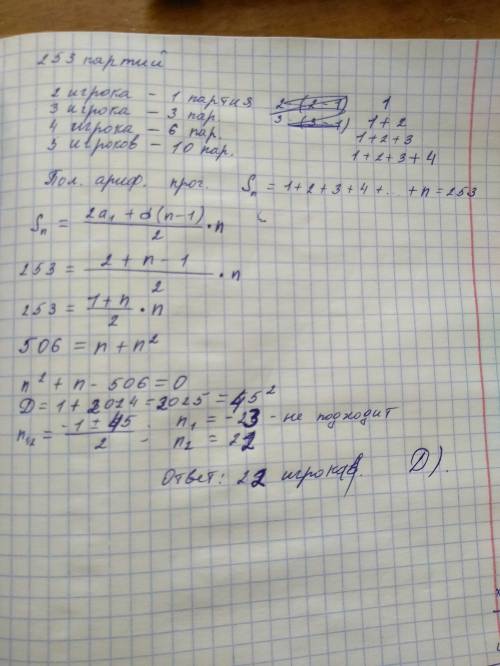 253 партий
2 игрока - 1 партия 2 (2-1) 1
3 игрока - 3 пар. 3 (3-1) 1+2
4 игрока - 6 пар. 1+2+3
5 игроков - 10 пар. 1+2+3+4
Пол. ариф. прог. Sₙ = 1+2+3+4+...+n=253
Sₙ = (2a₁ + d(n-1))/2 · n
253 = (2+n-1)/2 · n
253 = (1+n)/2 · n
506 = n + n²
n² + n - 506 = 0
D = 1 + 2024 = 2025 = 45²
n₁,₂ = (-1 ± 45)/2 . n₁ = -23 - не подходит
n₂ = 22
Ответ: 22 игрока. D).